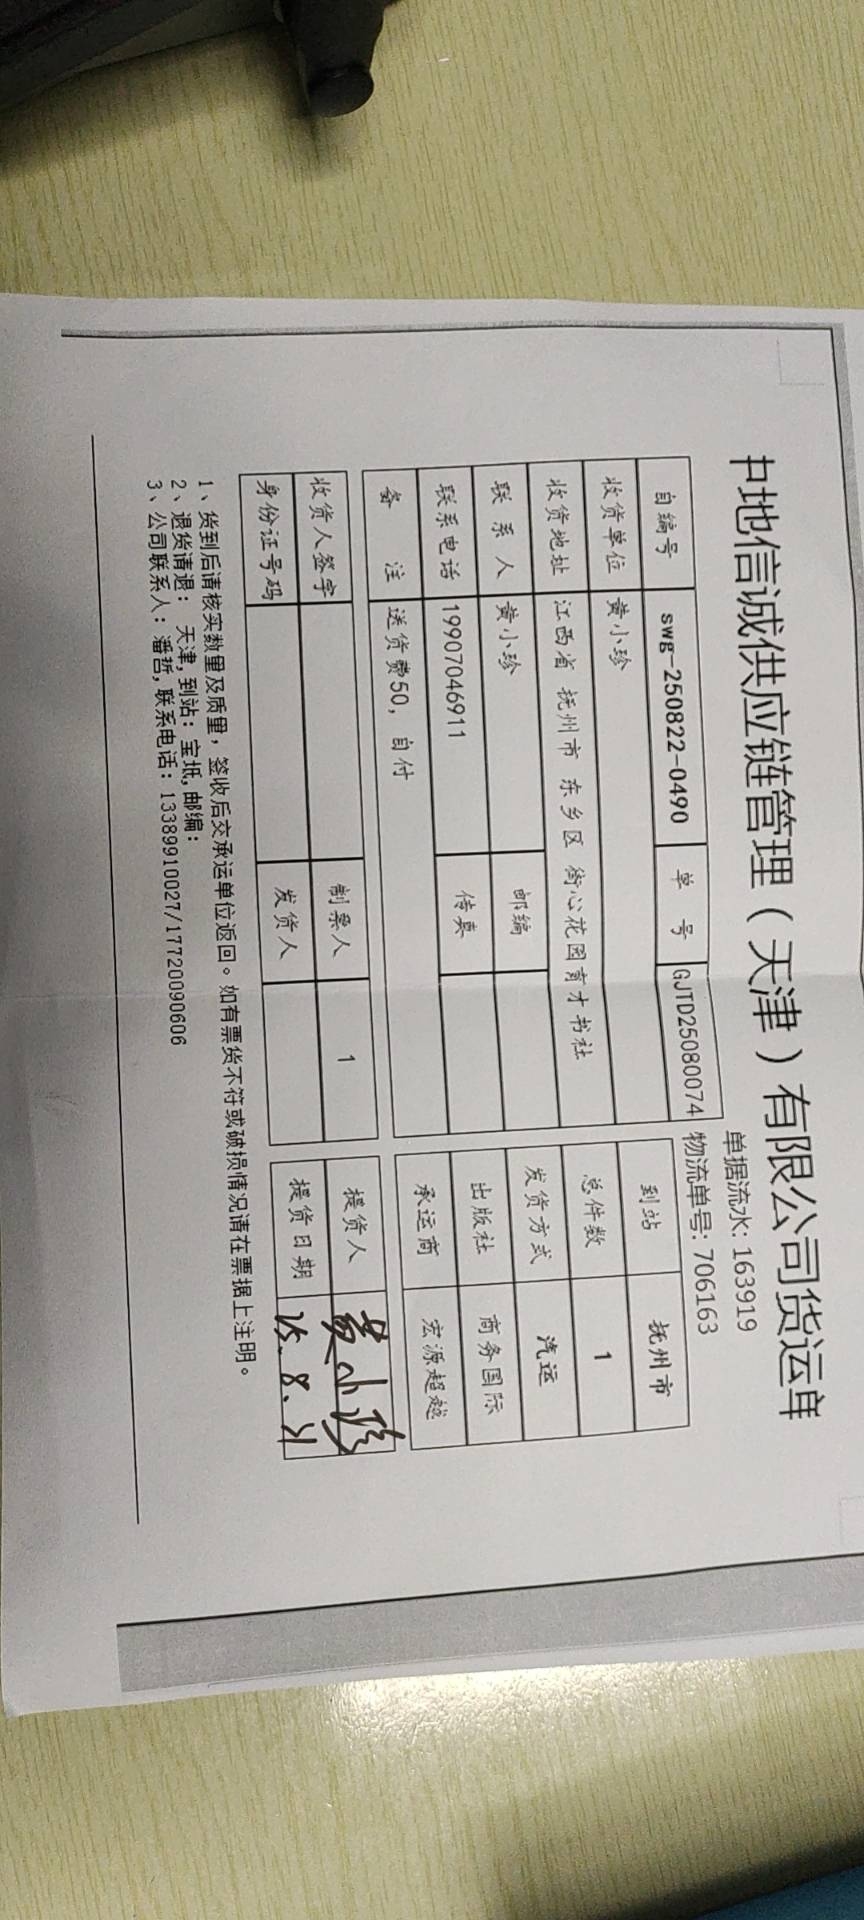 中地信诚供应链管理（天津）有限公司货运单
单据流水: 163919
物流单号: 706163
自编号 swg-250822-0490 单 号 GJTD25080074 到站 抚州市
收货单位 黄小珍 总件数 1
收货地址 江西省 抚州市 东乡区 街心花园育才书社 发货方式 汽运
联 系 人 黄小珍 邮编 出版社 商务国际
联系电话 19907046911 传真 承运商 宏源超越
备 注 送货费50, 自付
收货人签字 制票人 1 提货人 黄小珍
身份证号码 发货人 提货日期 25.8.
1、货到后请核实数量及质量，签收后交承运单位返回。如有票货不符或破损情况请在票据上注明。
2、退货请退： 天津,到站：宝坻,邮编：
3、公司联系人：潘哲,联系电话：13389910027/17720090606